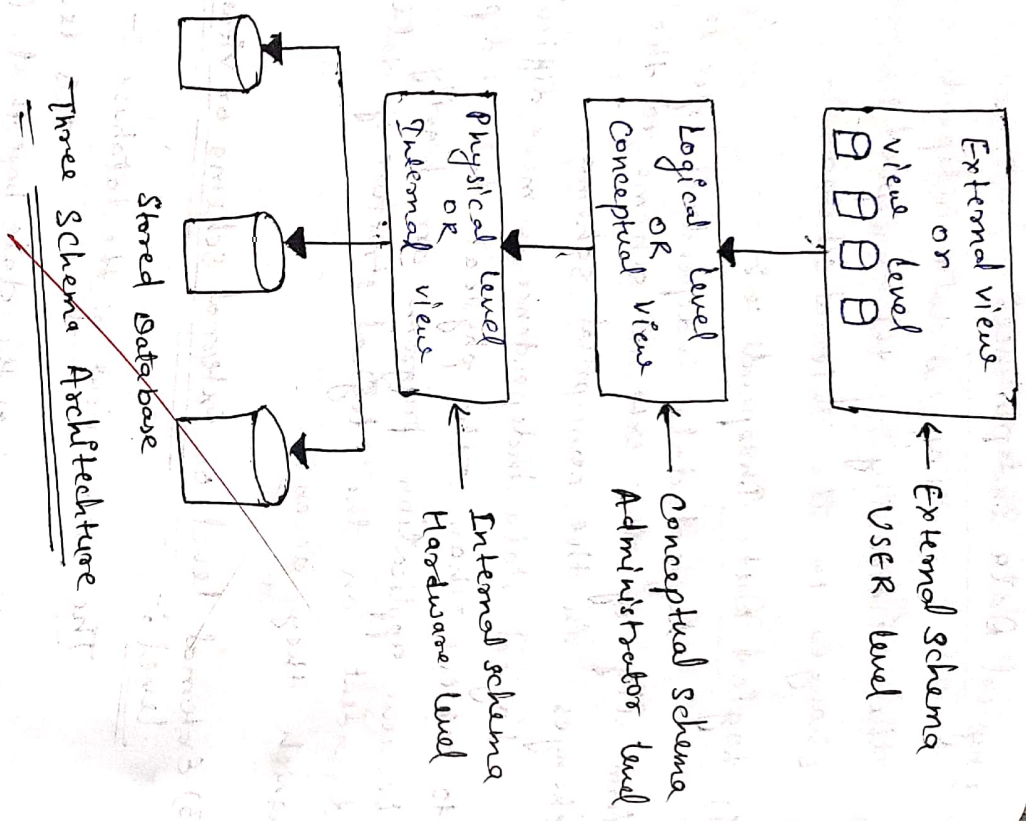 External view
or
view level
← External schema
USER level
Logical level
OR
Conceptual view
← Conceptual schema
Administrator level
Physical level
OR
Internal view
← Internal schema
Hardware level
Stored Database
Three Schema Architechture